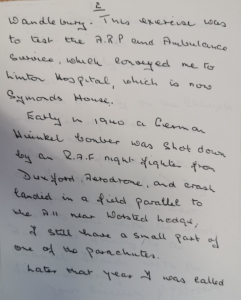 2
Wandlebury. This exercise was
to test the A.R.P and Ambulance
Service, which conveyed me to
Linton Hospital, which is now
Symonds House.
Early in 1940 a German
Heinkel bomber was shot down
by an R.A.F night fighter from
Duxford Aerodrome, and crash
landed in a field parallel to
the A11 near Worsted Lodge,
I still have a small part of
one of the parachutes.
Later that year I was called